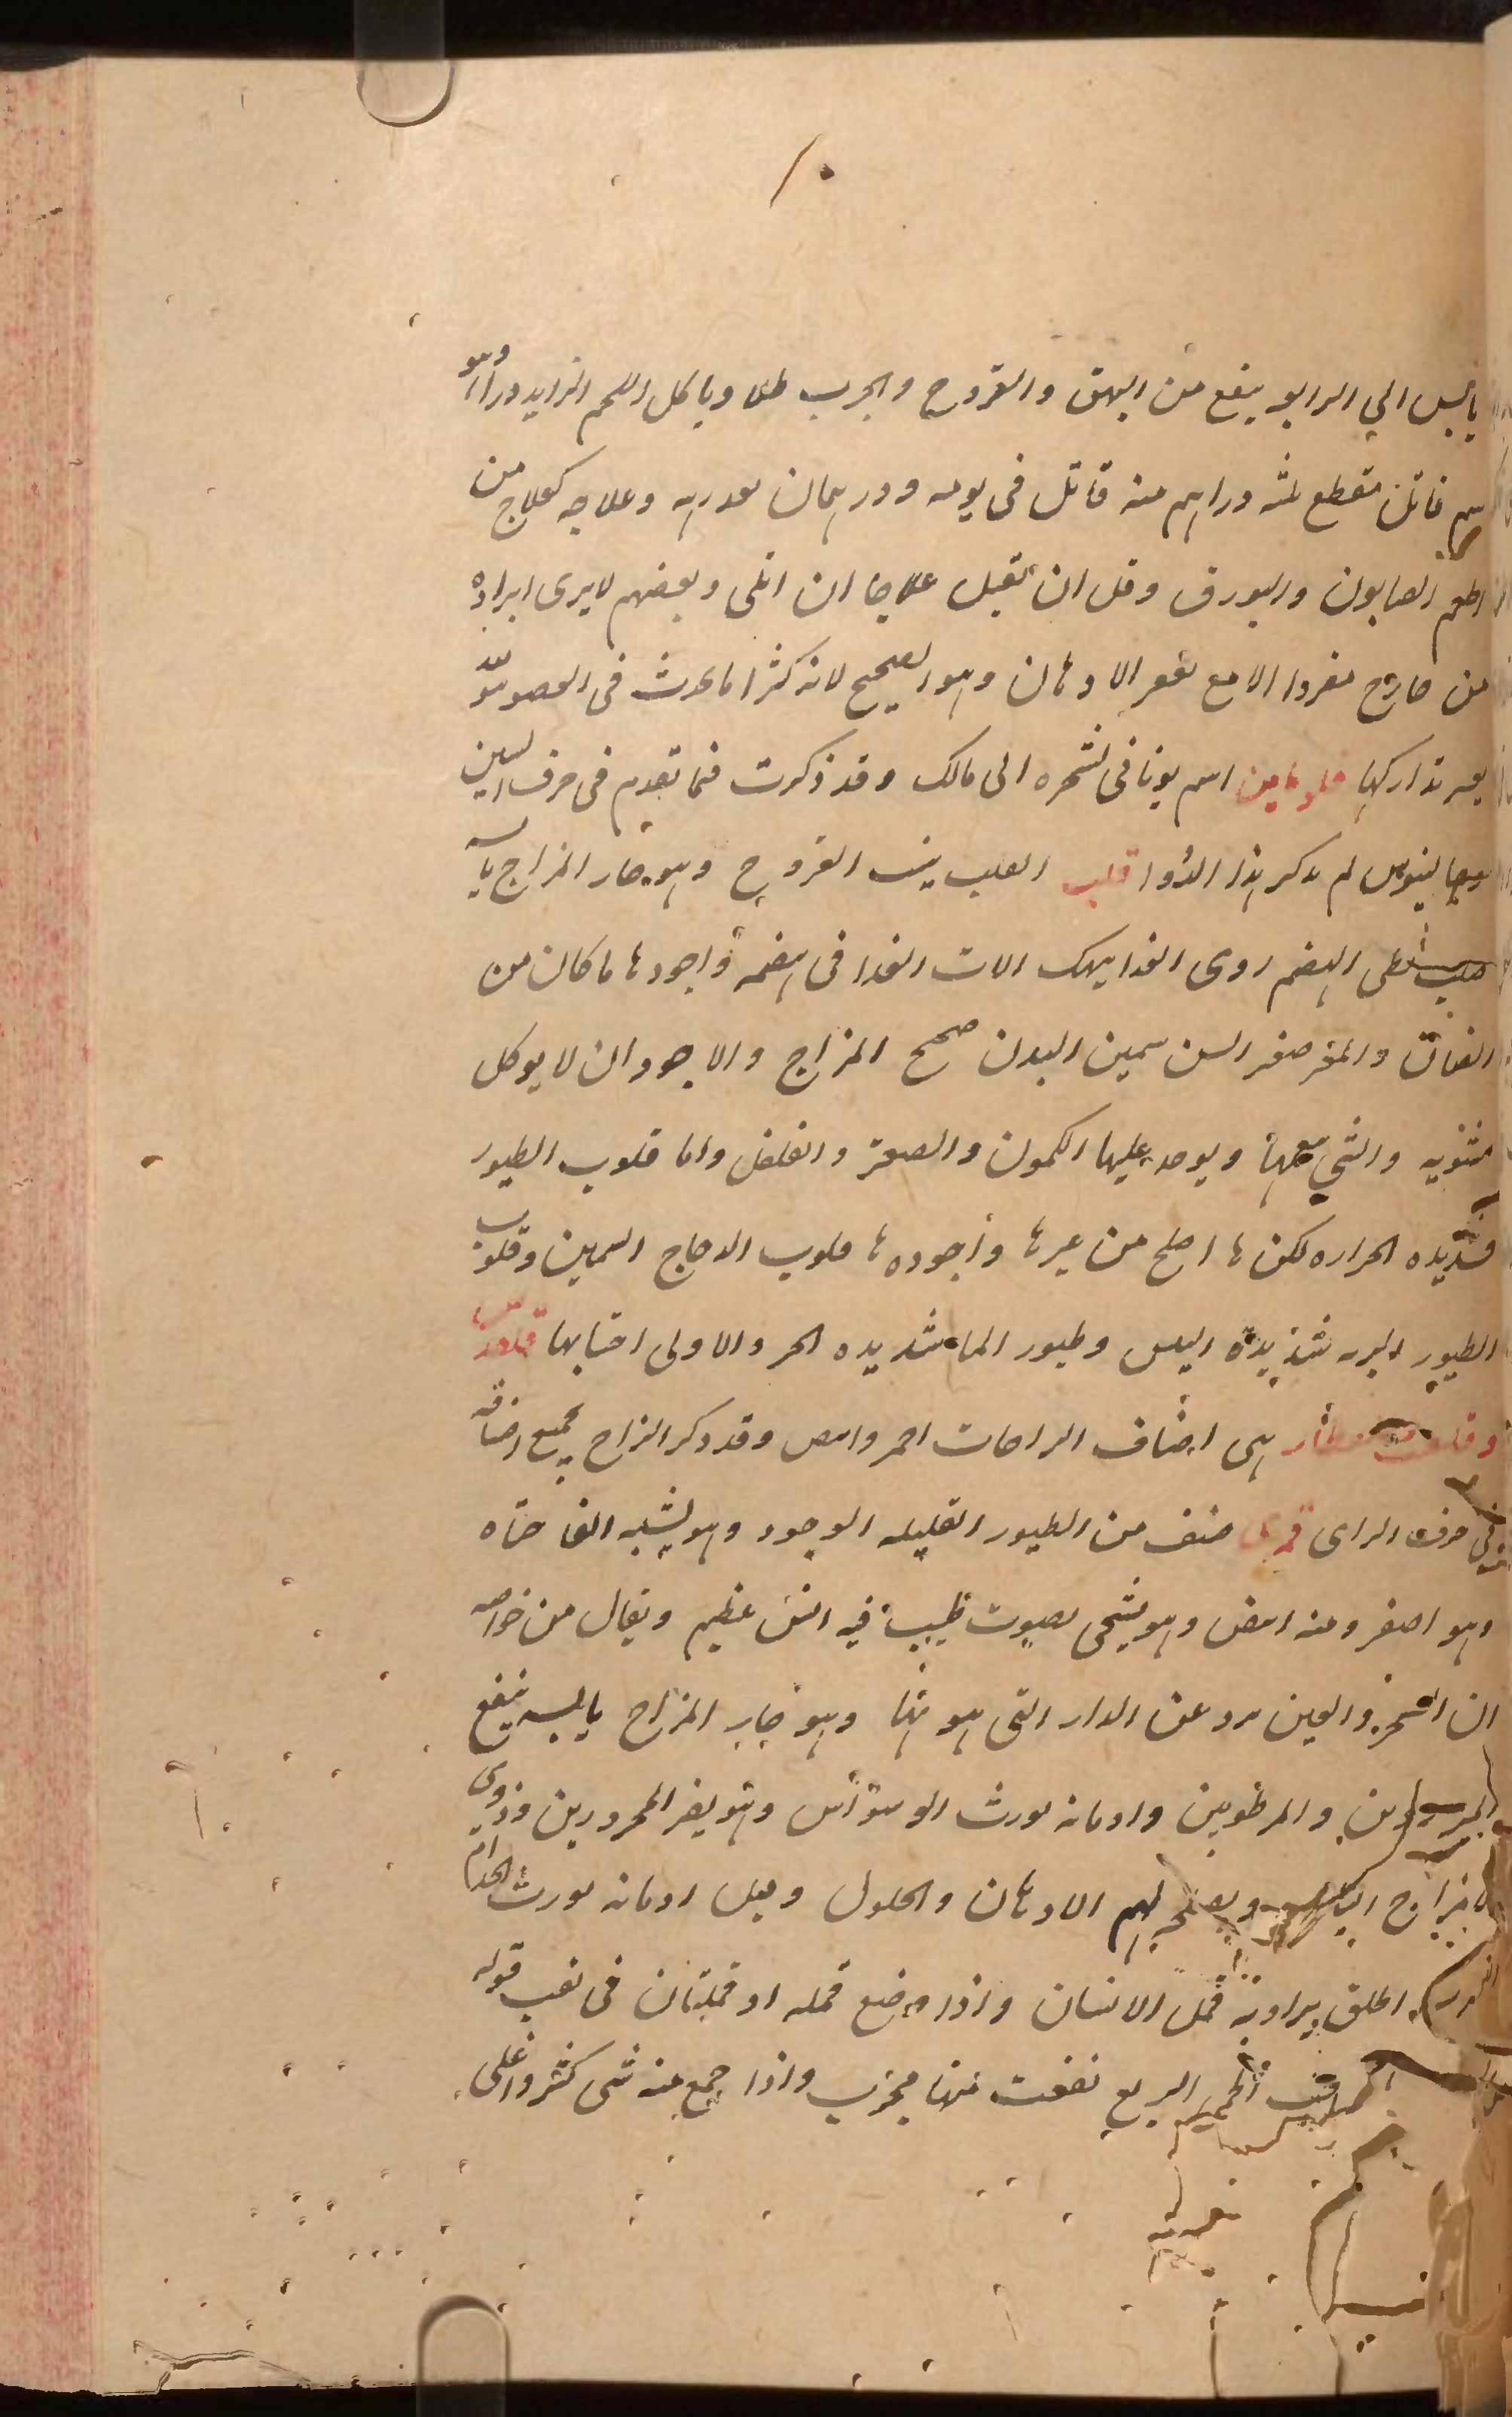 يابس الي الرابعه ينفع من البهق والقروح والجرب طلا وياكل اللحم الزايد ذرورا وهو
سم قاتل مقطع ثلثه دراهم منه قاتل في يومه ودرهمان بعد وعلاجه كعلاج من
اطعم الصابون والبورق وقل ان تقبل علاجا ان انلى وبعضهم لا يرى ايراده
من خارج مفردا الا مع بعض الادهان وهو الصحيح لانه كثرا ما يحدث في العضو
يعسر تداركها اسم يوناني لشجره الى مالك وقد ذكرت فيما تقدم في حرف السين
وجالينوس لم يذكر هذا الدوا قلب القلب ينبت القروح وهو حار المزاج يابس
صلب بطى الهضم ردى الغذا ينهك الات الغذا في هضمه واجودها ما كان من
الضان والمعز صغير السن سمين البدن صحيح المزاج والاجود ان لا يوكل
مشويه والشي معها ويوخذ عليها الكمون والصعتر والفلفل واما قلوب الطيور
فشديده الحراره لكنها اصلح من غيرها واجودها قلوب الدجاج السمين وقلوب
الطيور البريه شديدة اليبس وطيور الما شديده الحر والاولى اجتنابها
هى اصناف الزاجات احمر وابيض وقد ذكر الزاج بجميع اصنافه
في حرف الزاى قمرى صنف من الطيور القليله الوجود وهو يشبه الفاختاه
وهو اصفر ومنه ابيض وهو يشجى بصوت طيب فيه انس عظيم ويقال من خواصه
ان السحر والعين يرد عن الدار التي هو فيها وهو حار المزاج يابسه ينفع
المبرودين والمرطوبين وادمانه يورث الوسواس وهو يضر المحرورين وذوي
المزاج اليابس ويصلحه لهم الادهان والخلول وقيل ادمانه يورث الجذام
اطلق يراد به قمل الانسان واذا وضع قمله او قملتان في ثقب فوله
صاحب الحمى الربع نفعت منها مجرب واذا جمع منه شى كثير واغلى